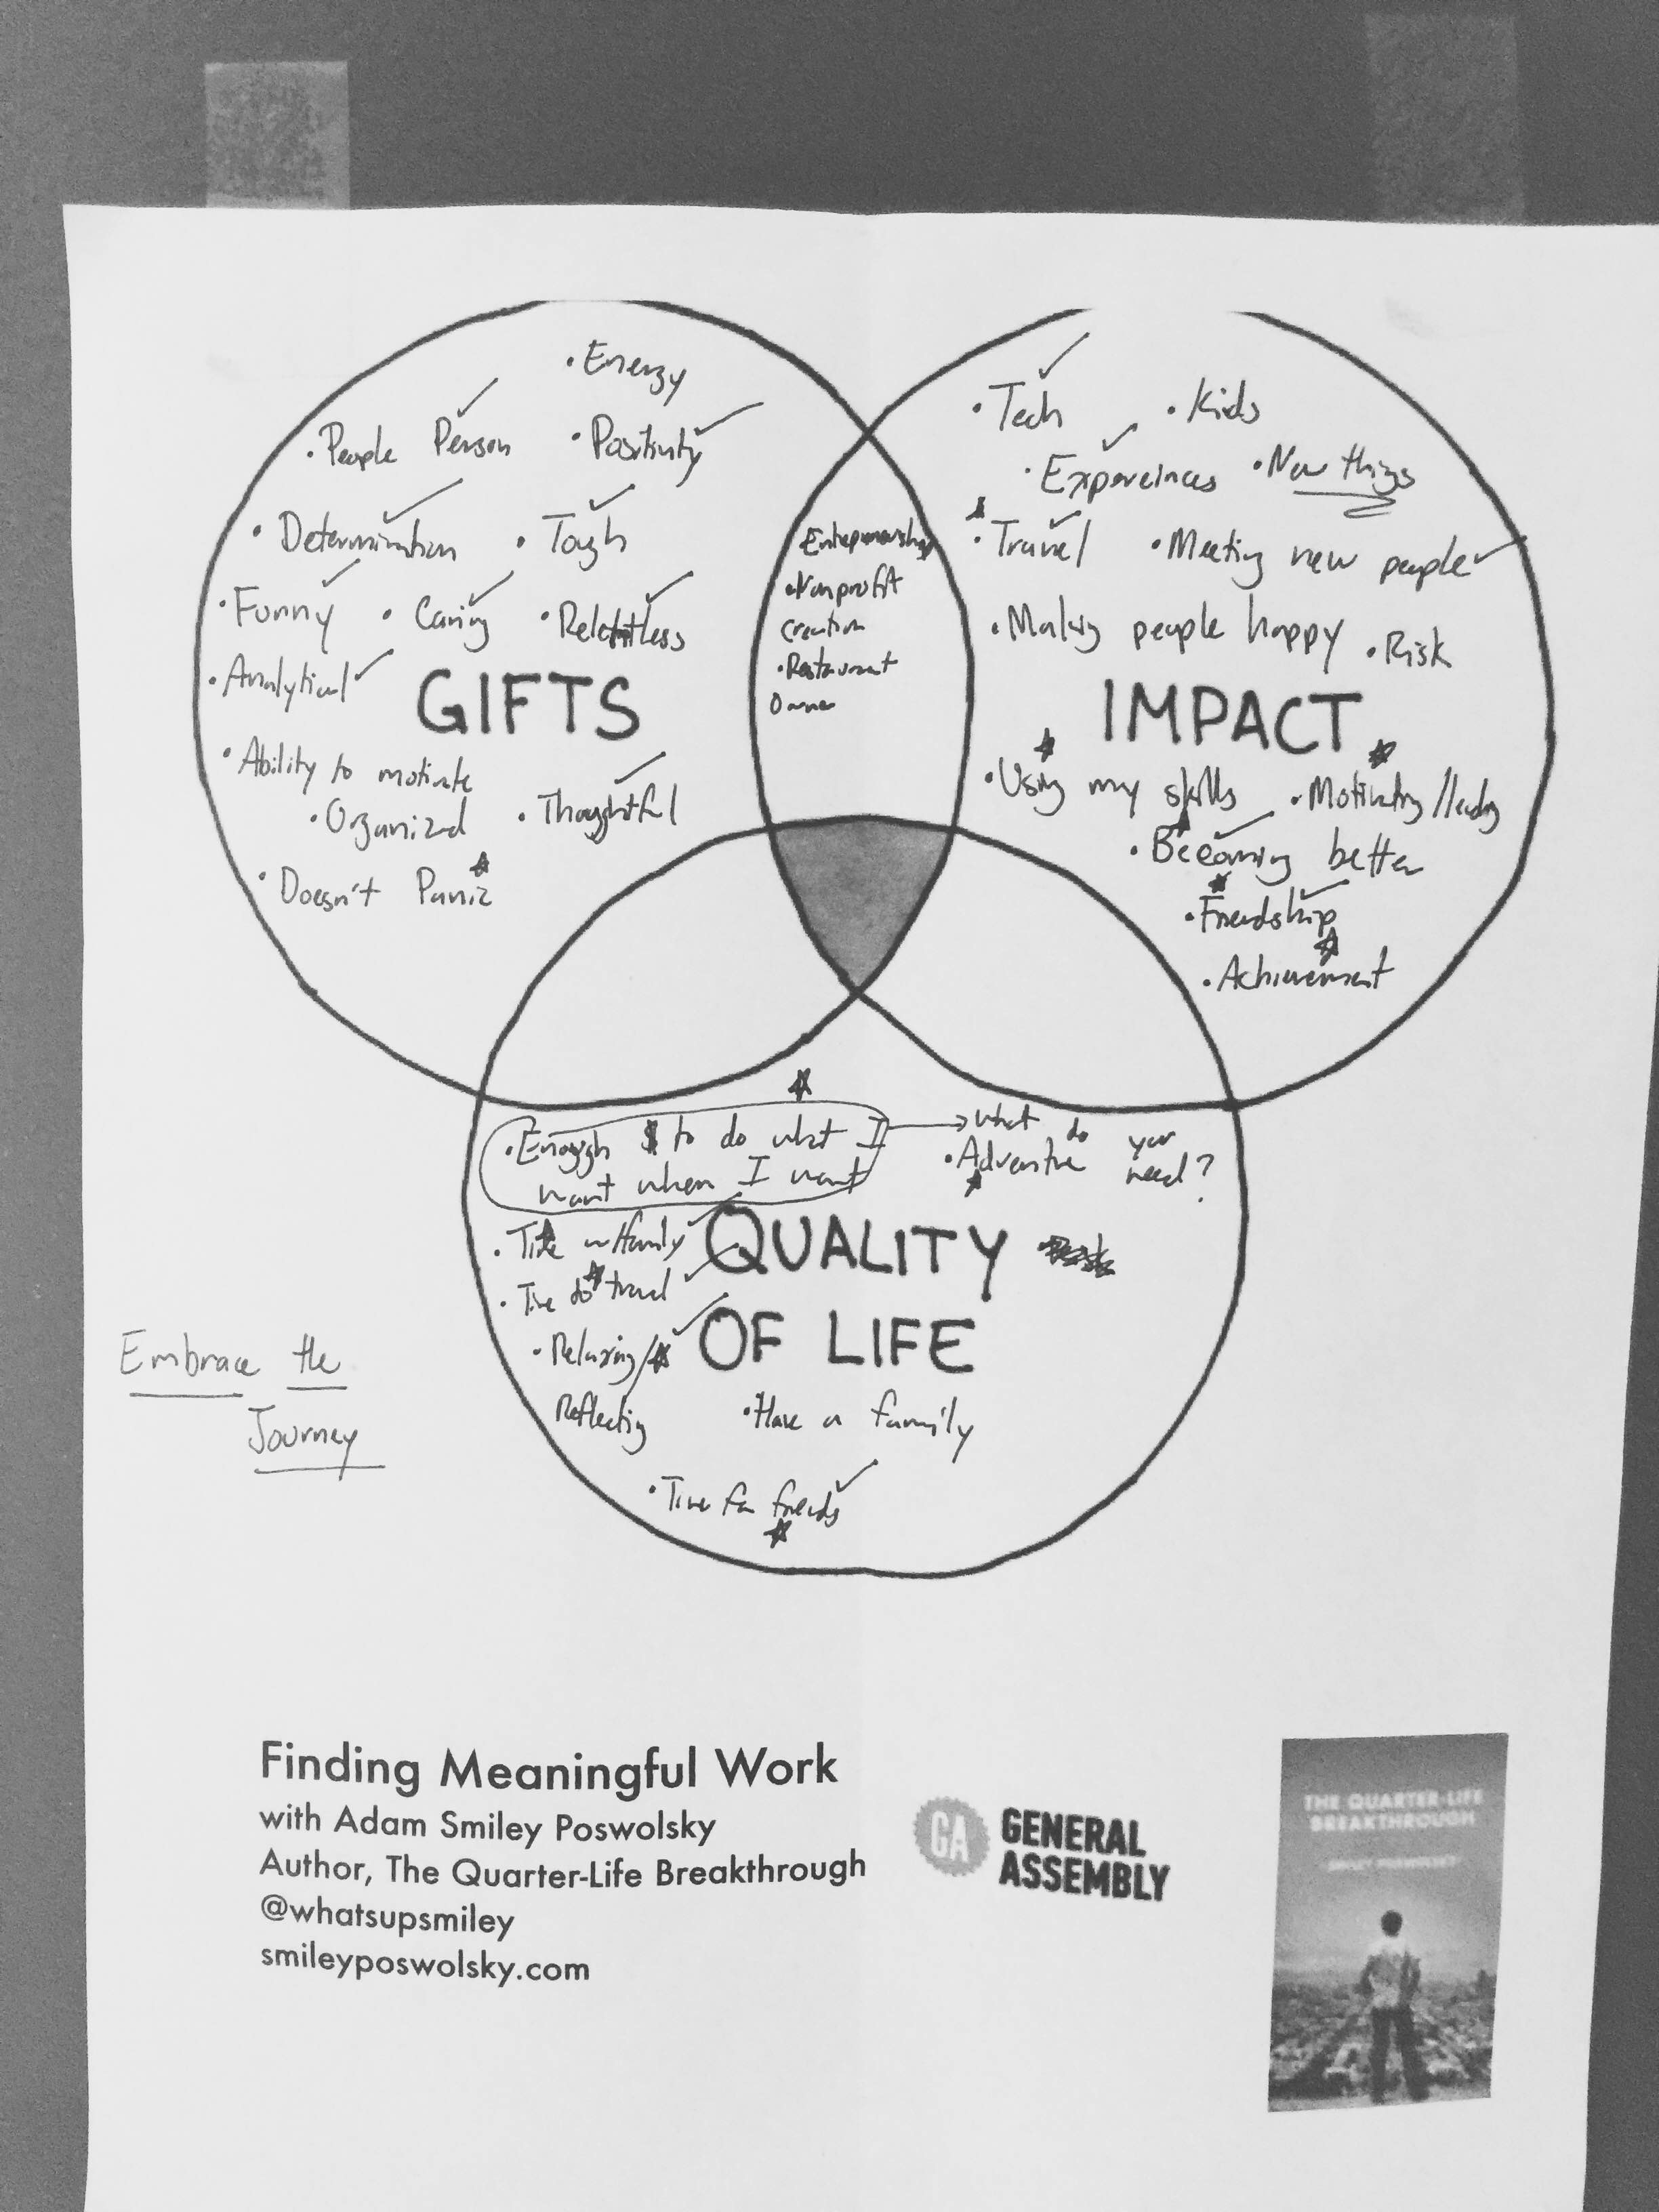 • Energy
• People Person
• Positivity
• Determination
• Tough
• Funny
• Caring
• Relentless
• Analytical
GIFTS
• Ability to motivate
• Organized
• Thoughtful
• Doesn't Panic
Entrepenership
• Nonprofit
Creation
• Restaurant
Owner
• Tech
• Kids
• Expereinces
• New things
• Travel
• Meeting new people
• Making people happy
• Risk
IMPACT
• Using my skills
• Motivating/leading
• Becoming better
• Friendship
• Achievement
• Enough $ to do what I
want when I want
→ What do you
need?
• Adventure
• Time w/family
QUALITY
• Time to travel
• Relaxing/
Reflecting
OF LIFE
• Have a family
• Time for friends
Embrace the
Journey
Finding Meaningful Work
with Adam Smiley Poswolsky
Author, The Quarter-Life Breakthrough
@whatsupsmiley
smileyposwolsky.com
GA
GENERAL
ASSEMBLY
THE QUARTER-LIFE
BREAKTHROUGH